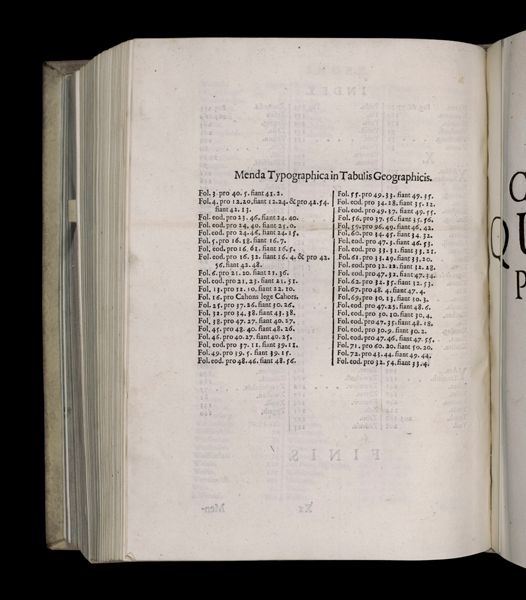 Menda Typographica in Tabulis Geographicis.
Fol. 3. pro 40. 5. fiant 41. 2.
Fol. 4. pro 12.20. fiant 12.24. & pro 42.54.
fiant 42. 13.
Fol. eod. pro 23. 46. fiant 24. 40.
Fol. eod. pro 24. 40. fiant 25. 0.
Fol. eod. pro 24. 46. fiant 24. 15.
Fol. 5. pro 16. 38. fiant 16. 7.
Fol. eod. pro 16. 61. fiant 16. 5.
Fol. eod. pro 16. 32. fiant 16. 4. & pro 42.
56. fiant 42. 48.
Fol. 6. pro 21. 20. fiant 21. 36.
Fol. eod. pro 21. 23. fiant 21. 51.
Fol. 13. pro 12. 10. fiant 22. 10.
Fol. 16. pro Cahons lege Cahors.
Fol. 25. pro 37. 26. fiant 30. 26.
Fol. 32. pro 34. 38. fiant 43. 38.
Fol. 38. pro 47. 27. fiant 40. 27.
Fol. 45. pro 48. 40. fiant 48. 26.
Fol. 46. pro 40. 27. fiant 40. 25.
Fol. eod. pro 37. 11. fiant 39. 11.
Fol. 49. pro 39. 5. fiant 39. 15.
Fol. eod. pro 48. 46. fiant 48. 56.
Fol. 55. pro 49. 33. fiant 49. 35.
Fol. eod. pro 34. 28. fiant 35. 12.
Fol. eod. pro 49. 37. fiant 49. 55.
Fol. 56. pro 37. 56. fiant 35. 56.
Fol. 59. pro 96. 49. fiant 46. 42.
Fol. 60. pro 34. 45. fiant 34. 32.
Fol. eod. pro 47. 3. fiant 46. 53.
Fol. eod. pro 33. 31. fiant 33. 21.
Fol. 61. pro 33. 28. fiant 33. 20.
Fol. eod. pro 32. 22. fiant 32. 28.
Fol. eod. pro 47. 32. fiant 47. 34.
Fol. 62. pro 32. 35. fiant 32. 53.
Fol. 67. pro 48. 4. fiant 47. 4.
Fol. 69. pro 30. 13. fiant 30. 3.
Fol. eod. pro 47. 25. fiant 48. 6.
Fol. eod. pro 30. 10. fiant 30. 4.
Fol. eod. pro 47. 35. fiant 48. 18.
Fol. eod. pro 30. 9. fiant 30. 2.
Fol. eod. pro 47. 46. fiant 47. 55.
Fol. 71. pro 60. 20. fiant 50. 20.
Fol. 72. pro 43. 44. fiant 49. 44.
Fol. eod. pro 32. 54. fiant 33. 4.